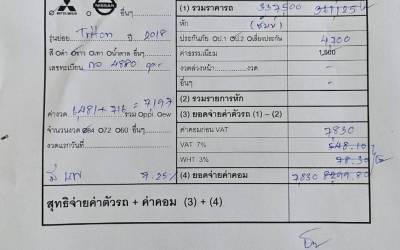 MITSUBISHI NISSAN อื่นๆ
(1) รวมราคารถ 337,500
หัก
รุ่นย่อย Triton ปี 2018
ประกันภัย ป.1 ป.2 เลี่ยงประกัน 4700
สี ดำ ขาว เทา น้ำตาล อื่นๆ
ค่าธรรมเนียม 1,500
เลขทะเบียน
งวดล่วงหน้า งวด -
อื่นๆ -
(2) รวมรายการหัก
ค่างวด = 7197
รวม ppi
(3) ยอดจ่ายค่าตัวรถ (1) - (2)
จำนวนงวด 84 72 60 อื่นๆ
ค่าคอมก่อน VAT 7830
งวดแรกวันที่
VAT 7% 548.10
WHT 3% 78.30
9.25%
(4) ยอดจ่ายค่าคอม 7830 8299.80
สุทธิจ่ายค่าตัวรถ + ค่าคอม (3) + (4)